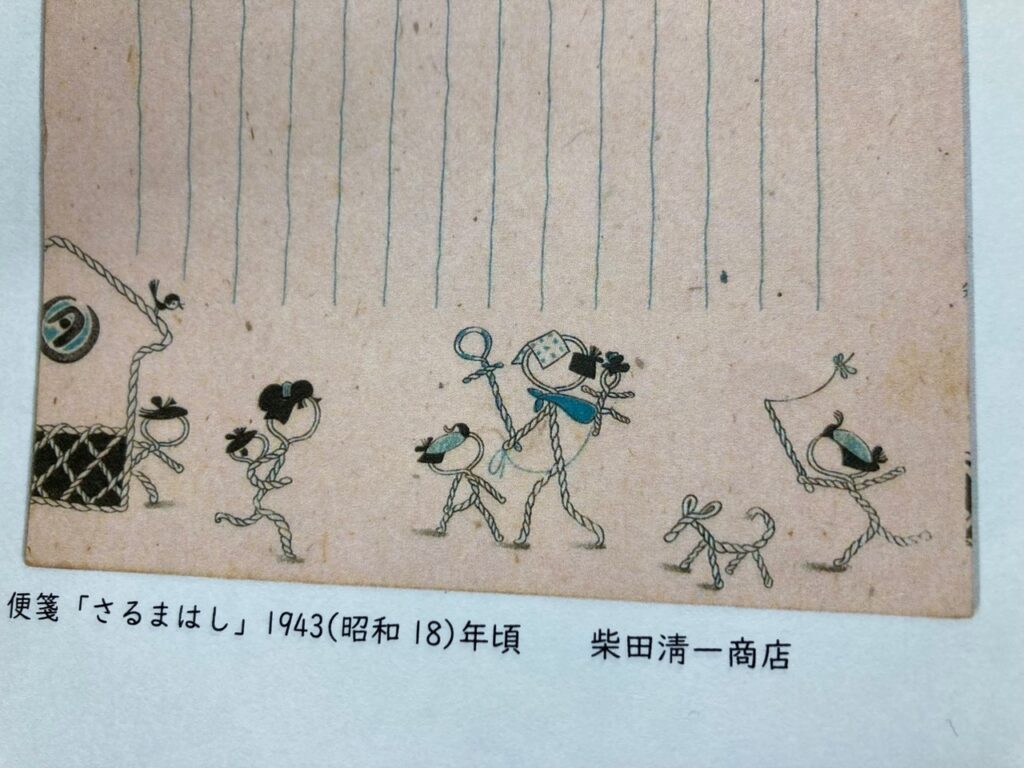 便箋「さるまはし」1943(昭和 18)年頃　　柴田清一商店